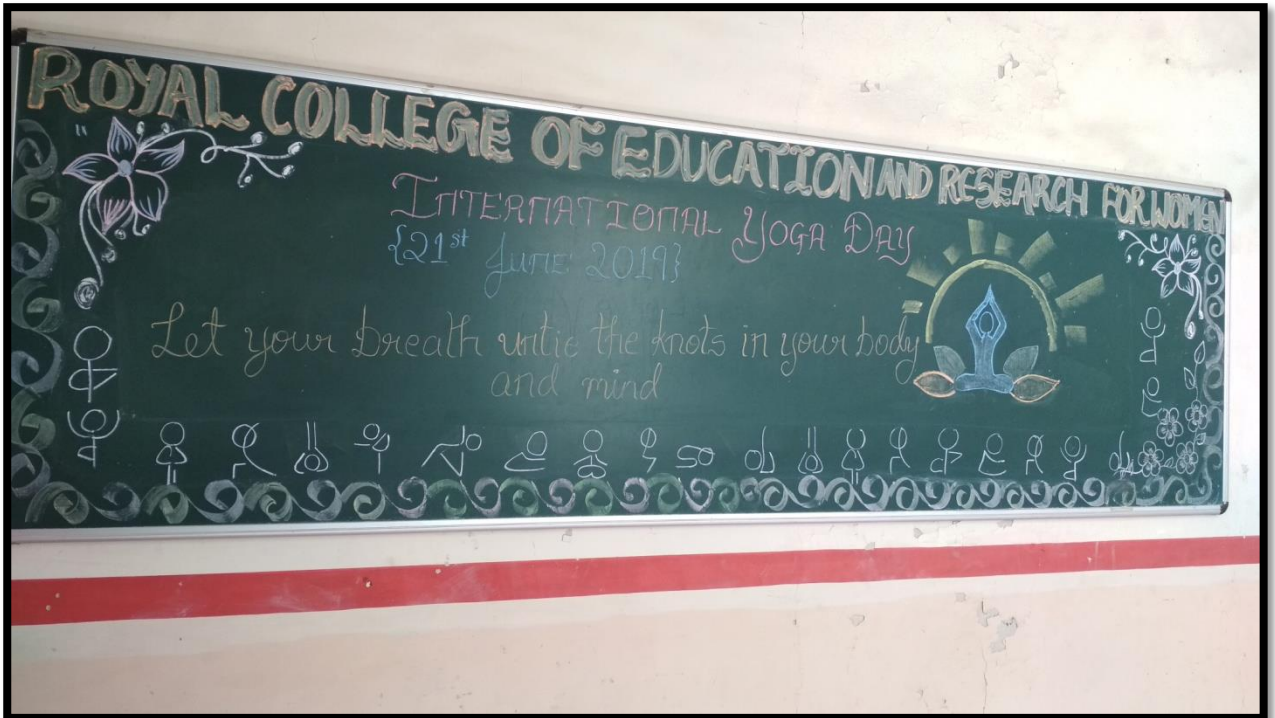 ROYAL COLLEGE OF EDUCATION AND RESEARCH FOR WOMEN
INTERNATIONAL YOGA DAY
{21st June 2019}
Let your breath untie the knots in your body
and mind